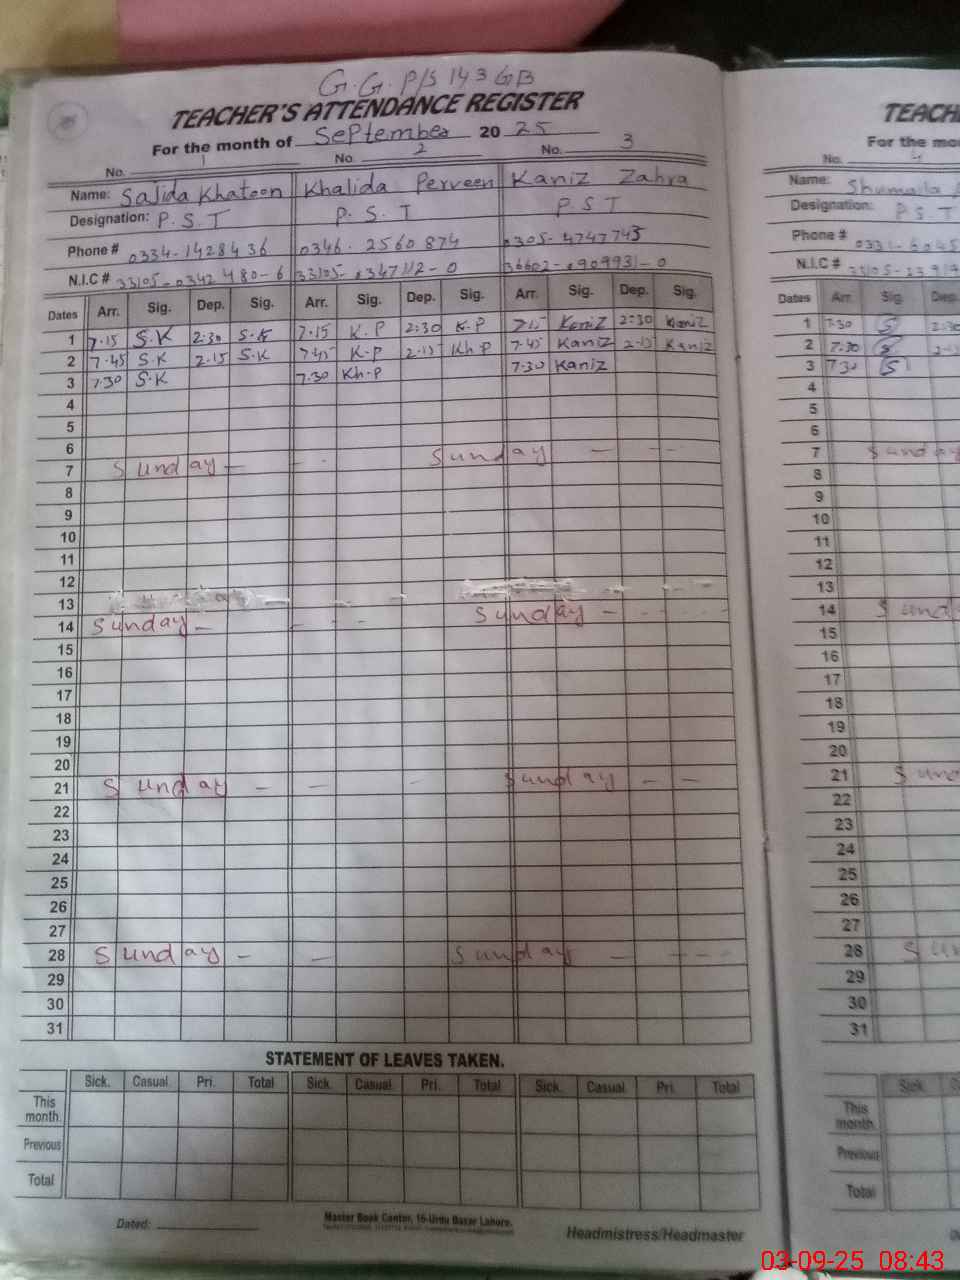 G.G.P/S 143 GB
TEACHER'S ATTENDANCE REGISTER
For the month of September 2025
No. 1 No. 2 No. 3
Name: Sajida Khatoon Khalida Perveen Kaniz Zahra
Designation: P.S.T P.S.T P.S.T
Phone # 0334-1428436 0346-2560874 0305-4747745
N.I.C # 33105-0342480-6 33105-0347112-0 36602-0909931-0
Dates Arr. Sig. Dep. Sig. Arr. Sig. Dep. Sig. Arr. Sig. Dep. Sig.
1 7.15 S.K 2:30 S.K 7.15 K.P 2:30 K.P 7.15 Kaniz 2:30 Kaniz
2 7.45 S.K 2.15 S.K 7.45 K.P 2.15 Kh.P 7.45 Kaniz 2.15 Kaniz
3 7.30 S.K 7.30 Kh.P 7.30 Kaniz
4
5
6
7 Sunday - - - Sunday - - -
8
9
10
11
12
13
14 Sunday - - - - Sunday - - - - -
15
16
17
18
19
20
21 Sunday - - - Sunday - -
22
23
24
25
26
27
28 Sunday - - Sunday - - - -
29
30
31
STATEMENT OF LEAVES TAKEN.
Sick. Casual Pri. Total Sick. Casual Pri. Total Sick. Casual Pri. Total
This month.
Previous
Total
Dated:
Master Book Center, 16-Urdu Bazar Lahore.
Headmistress/Headmaster
TEACH
For the mo
No. 4
Name: Shumaila
Designation: P.S.T
Phone # 0331-6045
N.I.C #
Dates Arr. Sig. Dep.
1 7:30 S 2:30
2 7:30 S
3 7:30 S
4
5
6
7 Sunday
8
9
10
11
12
13
14 Sund
15
16
17
18
19
20
21 Sund
22
23
24
25
26
27
28 Sun
29
30
31
Sick.
This month.
Previous
Total
03-09-25 08:43